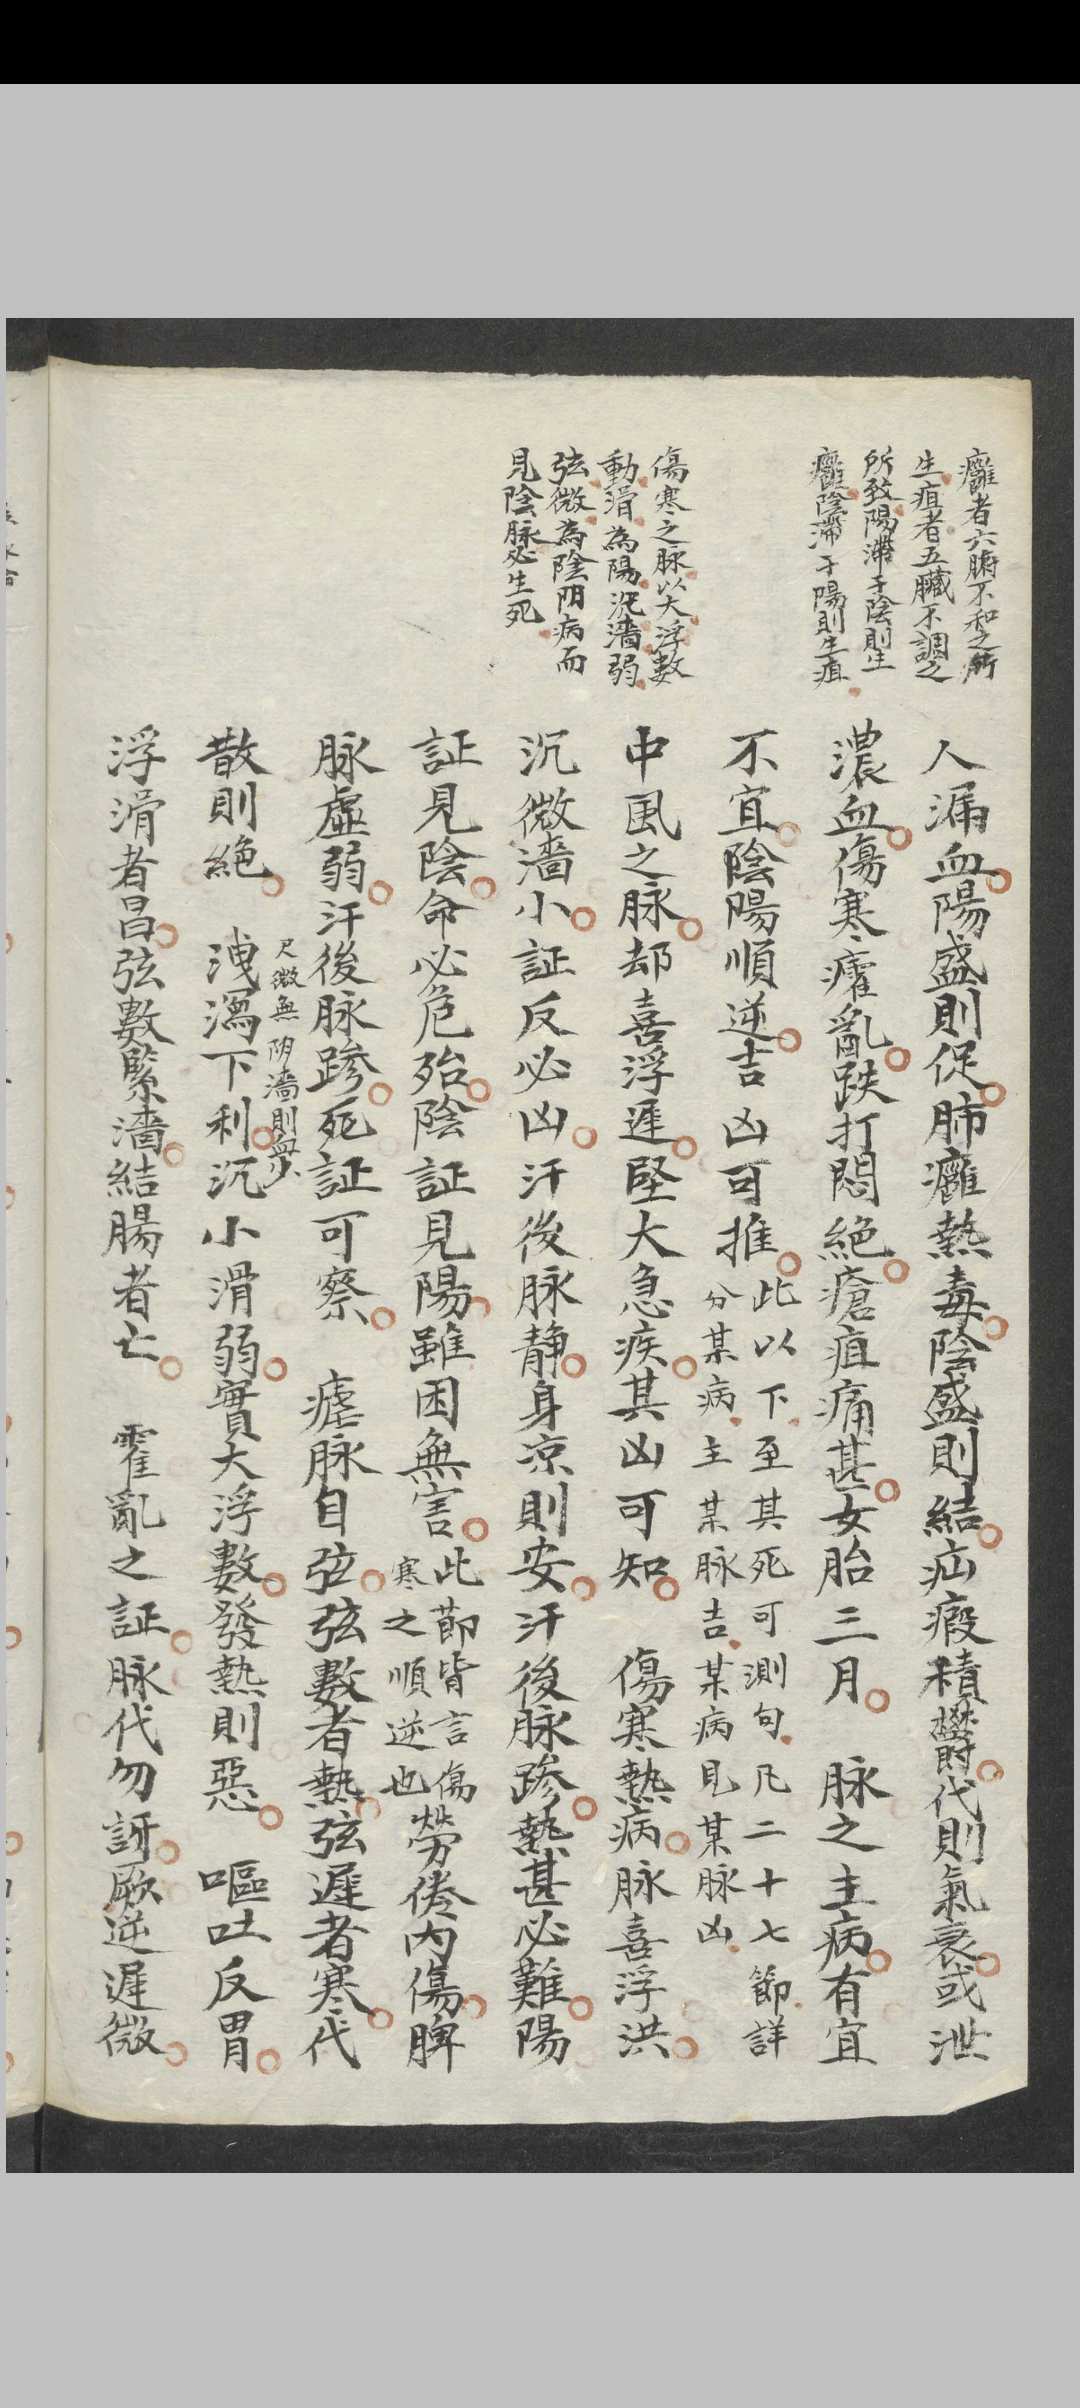 癰者六腑不和之所
生疽者五臟不調之
所致陽滯于陰則生
癰陰滯于陽則生疽
傷寒之脉以大浮數
動滑為陽沉濇弱
弦微為陰阴病而
見陰脉必生死
人漏血陽盛則促肺癰熱毒陰盛則結疝瘕積欝代則氣衰或泄
濃血傷寒癨亂跌打悶絕瘡疽痛甚女胎三月 脉之主病有宜
不宜陰陽順逆吉凶可推此以下至其死可測句凡二十七節詳
分某病主某脉吉某病見某脉凶
中風之脉却喜浮遲堅大急疾其凶可知 傷寒熱病脉喜浮洪
沉微濇小証反必凶汗後脉静身凉則安汗後脉躁熱甚必難陽
証見陰命必危殆陰証見陽雖困無害此節皆言傷
寒之順逆也
勞倦內傷脾
脉虛弱汗後脉躁死証可察 瘧脉自弦弦數者熱弦遲者寒代
散則絕 洩瀉下利沉小滑弱實大浮數發熱則惡 嘔吐反胃
尺微無阴濇則無火
浮滑者昌弦數緊濇結腸者亡 霍亂之証脉代勿訝厥逆遲微